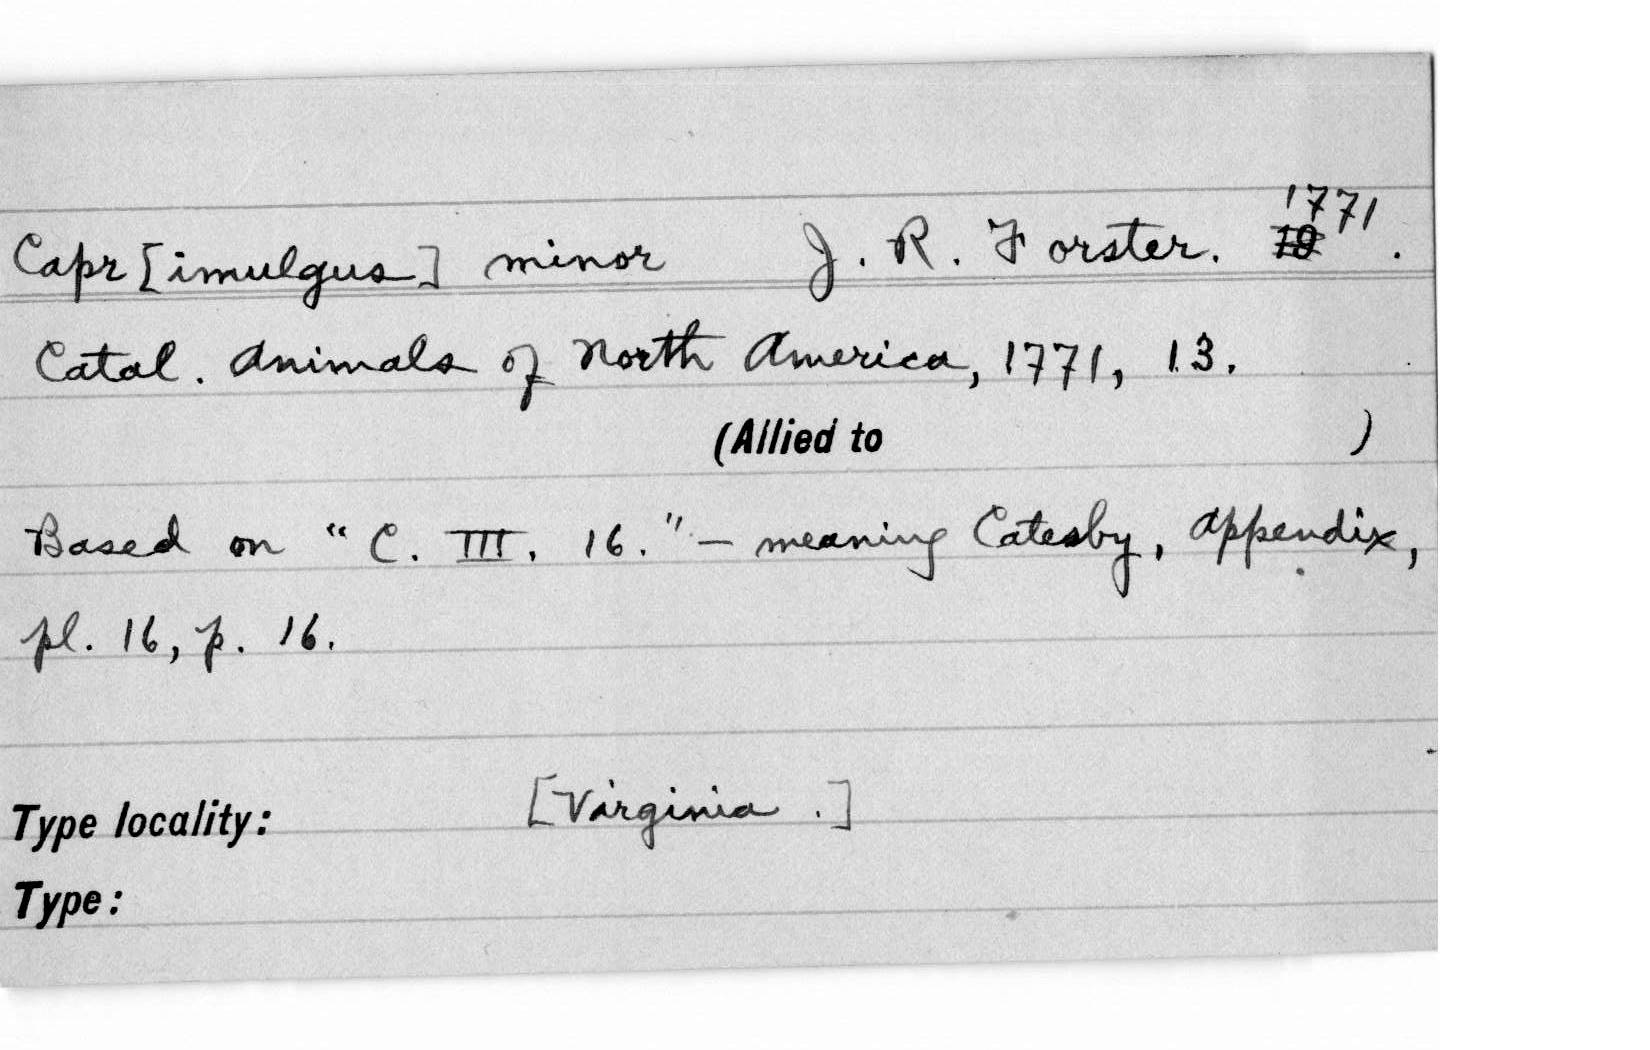 Capr[imulgus] minor J. R. Forster. 1771.
Catal. Animals of North America, 1771, 13.
(Allied to )
Based on "C. III. 16." — meaning Catesby, Appendix,
pl. 16, p. 16.
Type locality: [Virginia .]
Type: